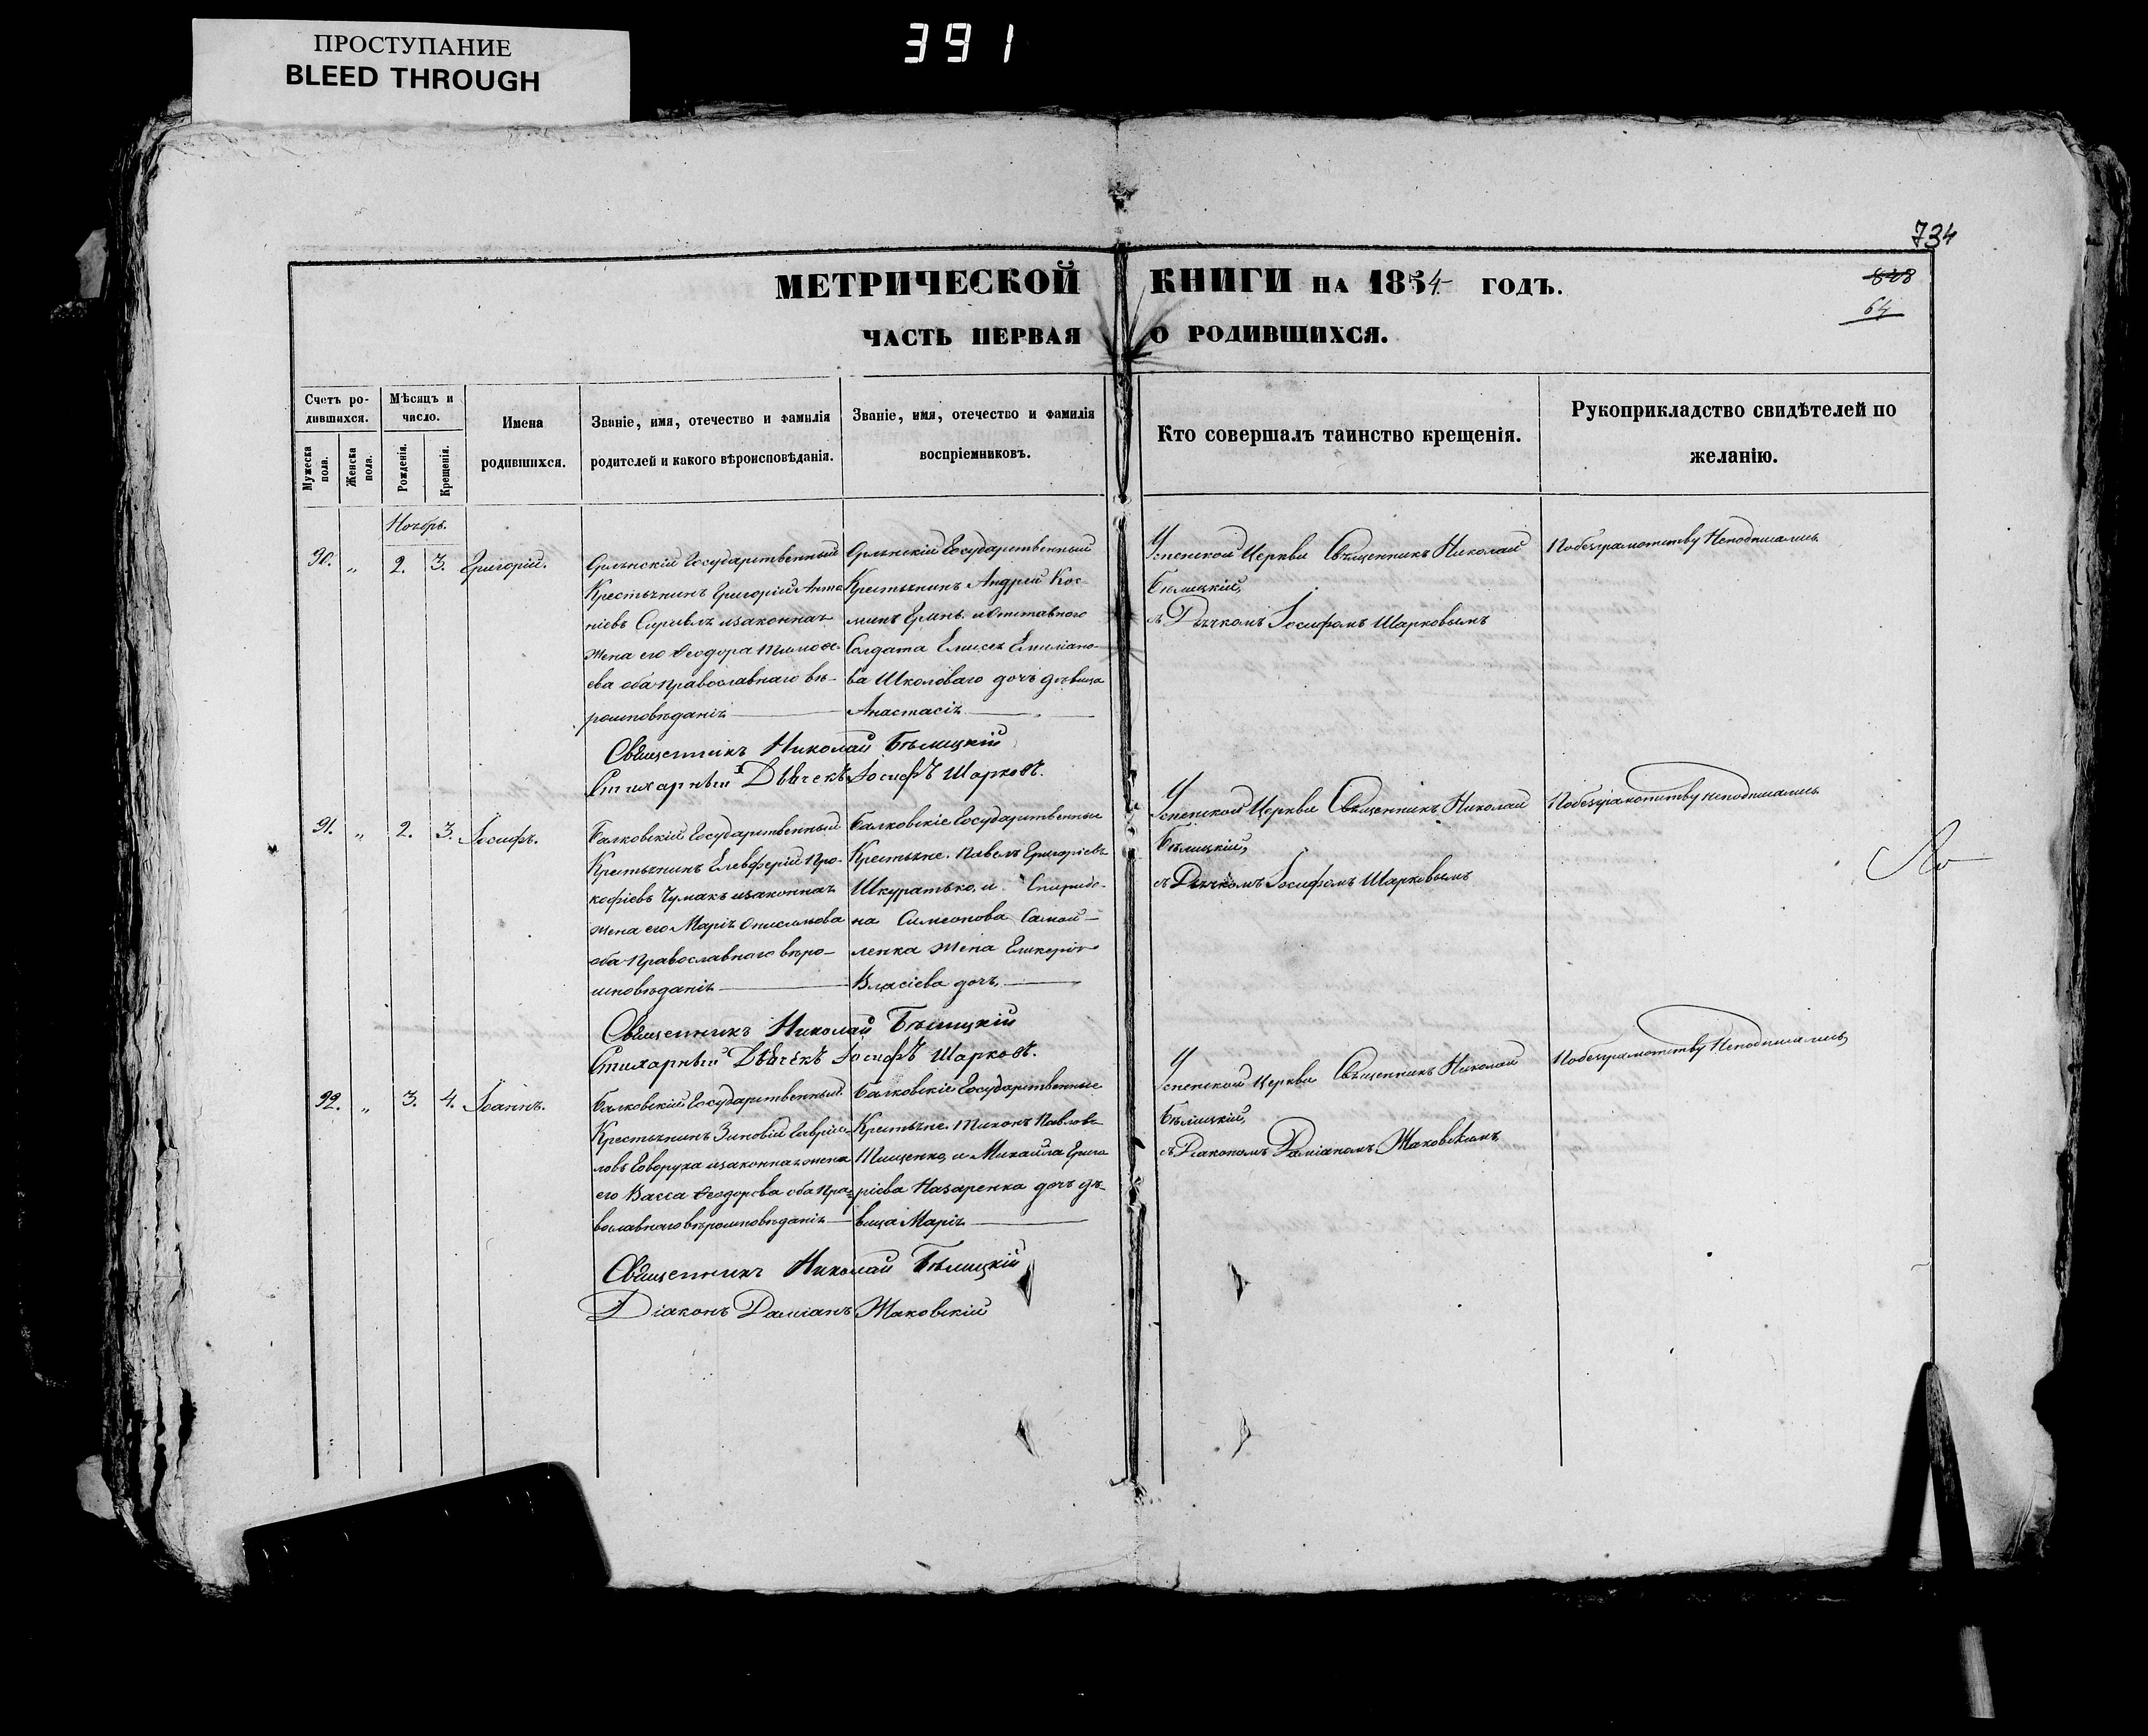 ПРОСТУПАНИЕ
BLEED THROUGH
391
734
МЕТРИЧЕСКОЙ КНИГИ НА 1854 ГОДЪ.
64
ЧАСТЬ ПЕРВАЯ О РОДИВШИХСЯ.
Счетъ ро-
дившихся.
Мужеска пола.
Женска пола.
Мѣсяцъ и
число.
Рожденія.
Крещенія.
Имена
родившихся.
Званіе, имя, отечество и фамилія
родителей и какого вѣроисповѣданія.
Званіе, имя, отечество и фамилія
воспріемниковъ.
Кто совершалъ таинство крещенія.
Рукоприкладство свидѣтелей по
желанію.
Ноябрь.
90. „ 2. 3. Григорій.
Государственный
Крестьянинъ Григорій Анто
ніевъ изаконная
жена его Ѳеодора Тимоѳе-
ева оба православнаго вѣ-
роисповѣданія
Государственный
Крестьянинъ Андрей Кос-
минъ иОтставнаго
Солдата Елисея Емиліано-
ва Школоваго дочь дѣвица
Анастасія
Успенской Церкви Священникъ Николай
Бѣлицкій,
съ Дьячкомъ Іосифомъ Шарковымъ
Побезграмотству Неподписались
Священникъ Николай Бѣлицкій
Стихарный Дьячекъ Іосифъ Шарковъ.
91. „ 2. 3. Іосифъ.
Балковскій Государственный
Крестьянинъ Елевферій Про-
кофіевъ Чумакъ изаконная
жена его Марія Онисимова
оба Православнаго вѣро-
исповѣданія
Балковскіе Государственные
Крестьяне. Павелъ Григоріевъ
Шкуратько, и Спиридо-
на Симеонова Самой-
ленка жена Гликерія
Власіева дочь,
Успенской Церкви Священникъ Николай
Бѣлицкій,
съ Дьячкомъ Іосифомъ Шарковымъ
Побезграмотству неподписались
Священникъ Николай Бѣлицкій
Стихарный Дьячекъ Іосифъ Шарковъ.
92. „ 3. 4. Іоаннъ.
Балковскій Государственный
Крестьянинъ Зиновій Гавріи-
ловъ Говоруха изаконная жена
его Васса Ѳеодорова оба Пра-
вославнаго вѣроисповѣданія
Балковскіе Государственные
Крестьяне. Тихонъ Павловъ
Тищенко, и Михаила Григо
ріева Назаренка дочь дѣ-
вица Марія
Успенской Церкви Священникъ Николай
Бѣлицкій,
съ Діакономъ Даміаномъ Жаковскимъ
Побезграмотству Неподписались,
Священникъ Николай Бѣлицкій
Діаконъ Даміанъ Жаковскій